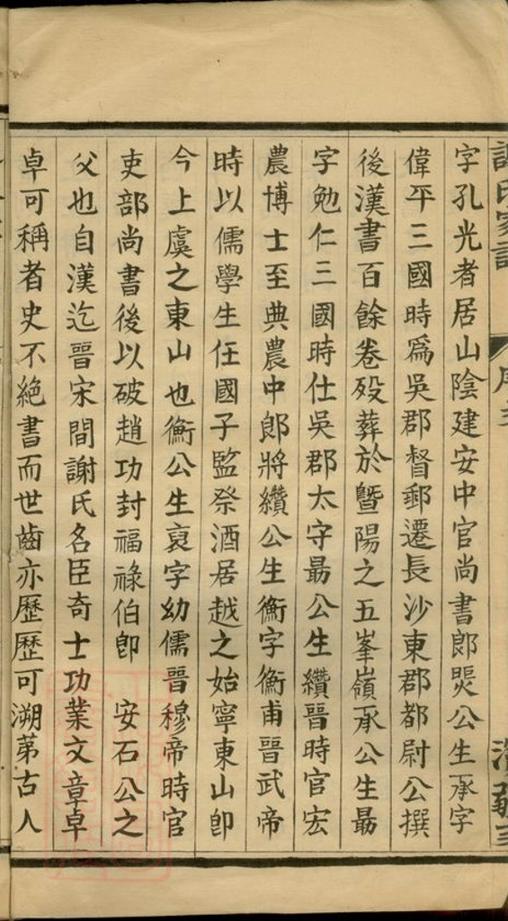 謝氏家譜
字孔光者居山陰建安中官尚書郎煚公生承字
偉平三國時爲吳郡督郵遷長沙東郡都尉公撰
後漢書百餘卷歿葬於暨陽之五峯嶺承公生勗
字勉仁三國時仕吳郡太守勗公生纘晉時官宏
農博士至典農中郎將纘公生衡字衡甫晉武帝
時以儒學生任國子監祭酒居越之始寧東山卽
今上虞之東山也衡公生裒字幼儒晉穆帝時官
吏部尚書後以破趙功封福祿伯卽　安石公之
父也自漢迄晉宋間謝氏名臣奇士功業文章卓
卓可稱者史不絕書而世齒亦歷歷可溯苐古人